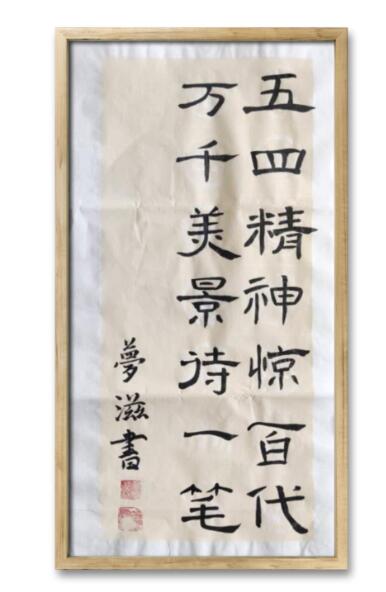 五四精神惊百代
万千美景待一笔
夢滋書